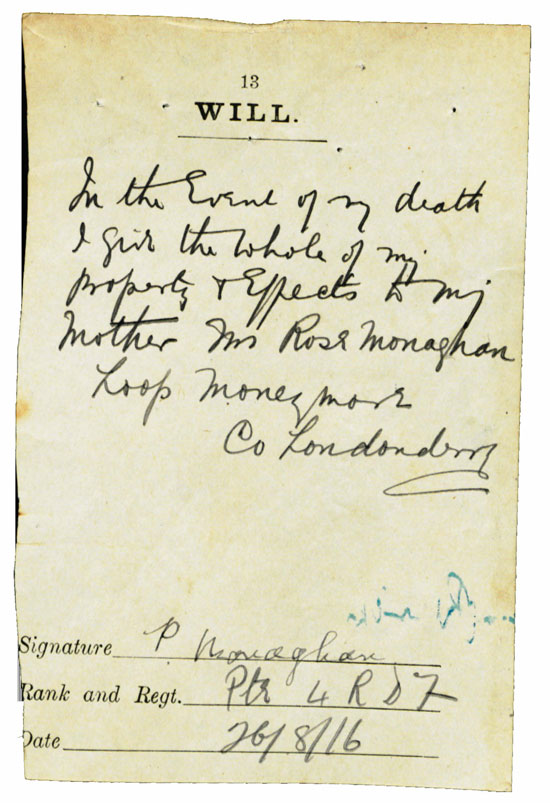 13
WILL.
In the Event of my death
I give the whole of my
property & Effects to my
Mother Mrs Rose Monaghan
Loop Moneymore
Co Londonderry
Signature P Monaghan
Rank and Regt. Pte 4 R D F
Date 26/8/16